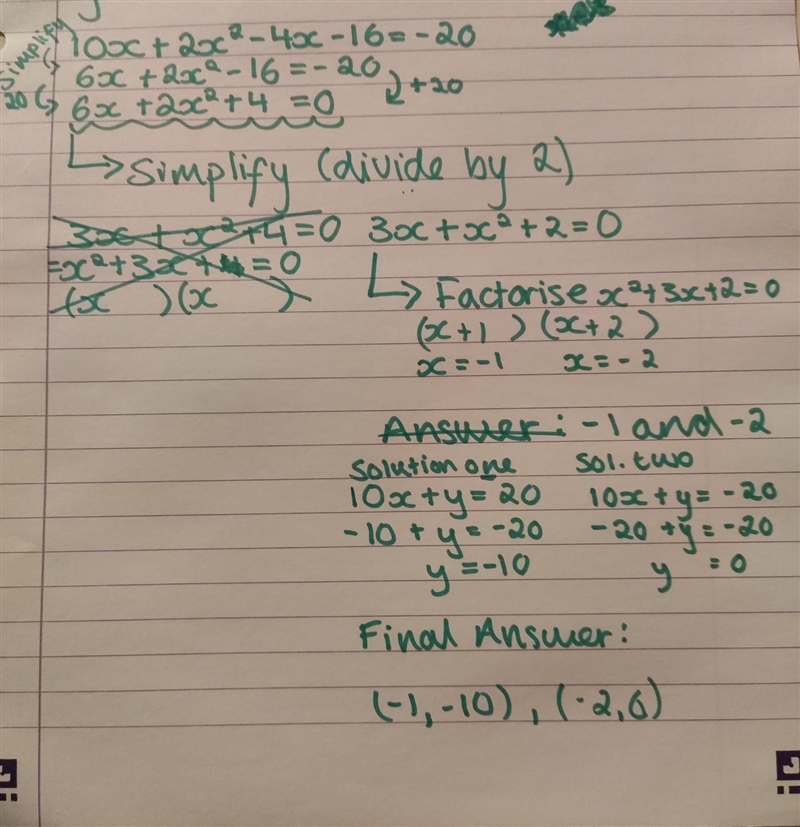 Simplify
10x + 2x² - 4x - 16 = -20
6x + 2x² - 16 = -20
+20
20
6x + 2x² + 4 = 0
Simplify (divide by 2)
3x + x² + 4 = 0
=x² + 3x + 4 = 0
(x )(x )
3x + x² + 2 = 0
Factorise x² + 3x + 2 = 0
(x+1 ) (x+2 )
x = -1 x = -2
Answer: -1 and -2
Solution one Sol. two
10x + y = 20 10x + y = -20
-10 + y = -20 -20 + y = -20
y = -10 y = 0
Final Answer:
(-1, -10) , (-2, 0)